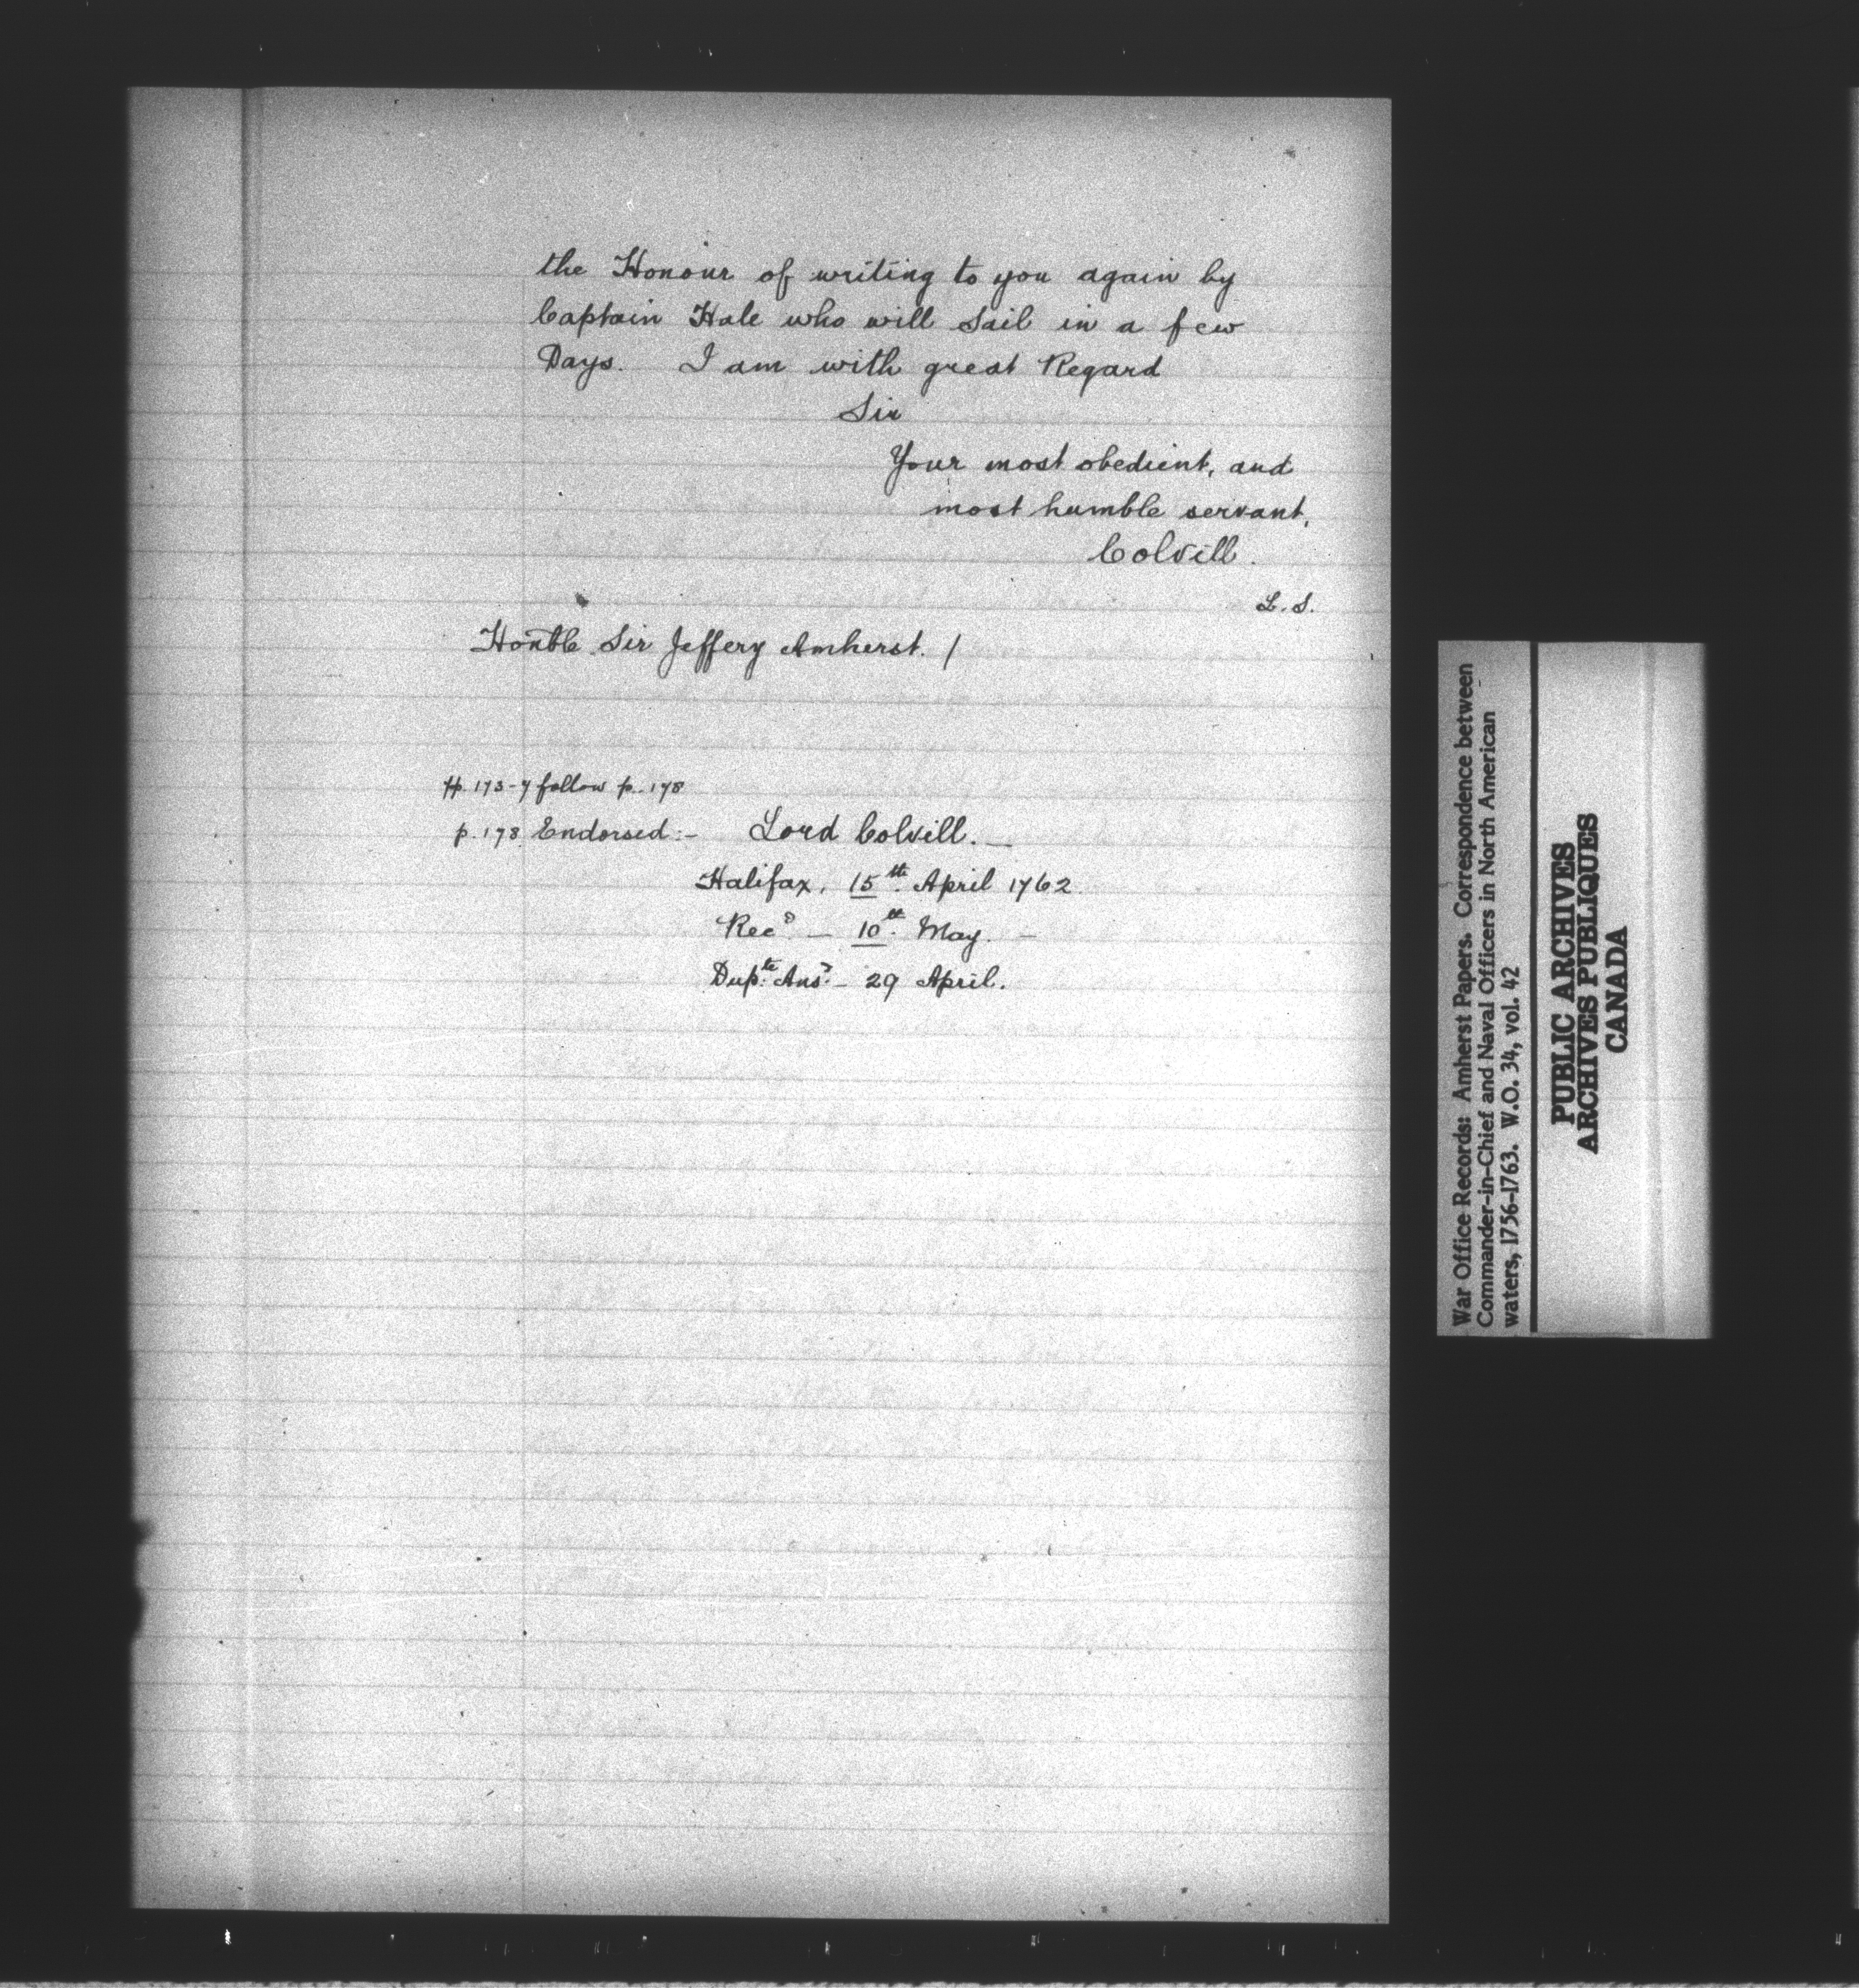 the Honour of writing to you again by
Captain Hale who will sail in a few
Days. I am with great Regard
Sir
Your most obedient, and
most humble servant,
Colvill.
L.S.
Honble Sir Jeffery Amherst. /
pp. 173-7 follow p. 178
p. 178 Endorsed:- Lord Colvill. —
Halifax, 15th. April 1762.
Recd — 10th. May. —
Dupte. Ansd. - 29 April.
War Office Records: Amherst Papers. Correspondence between
Commander-in-Chief and Naval Officers in North American
waters, 1756-1763. W.O. 34, vol. 42
PUBLIC ARCHIVES
ARCHIVES PUBLIQUES
CANADA